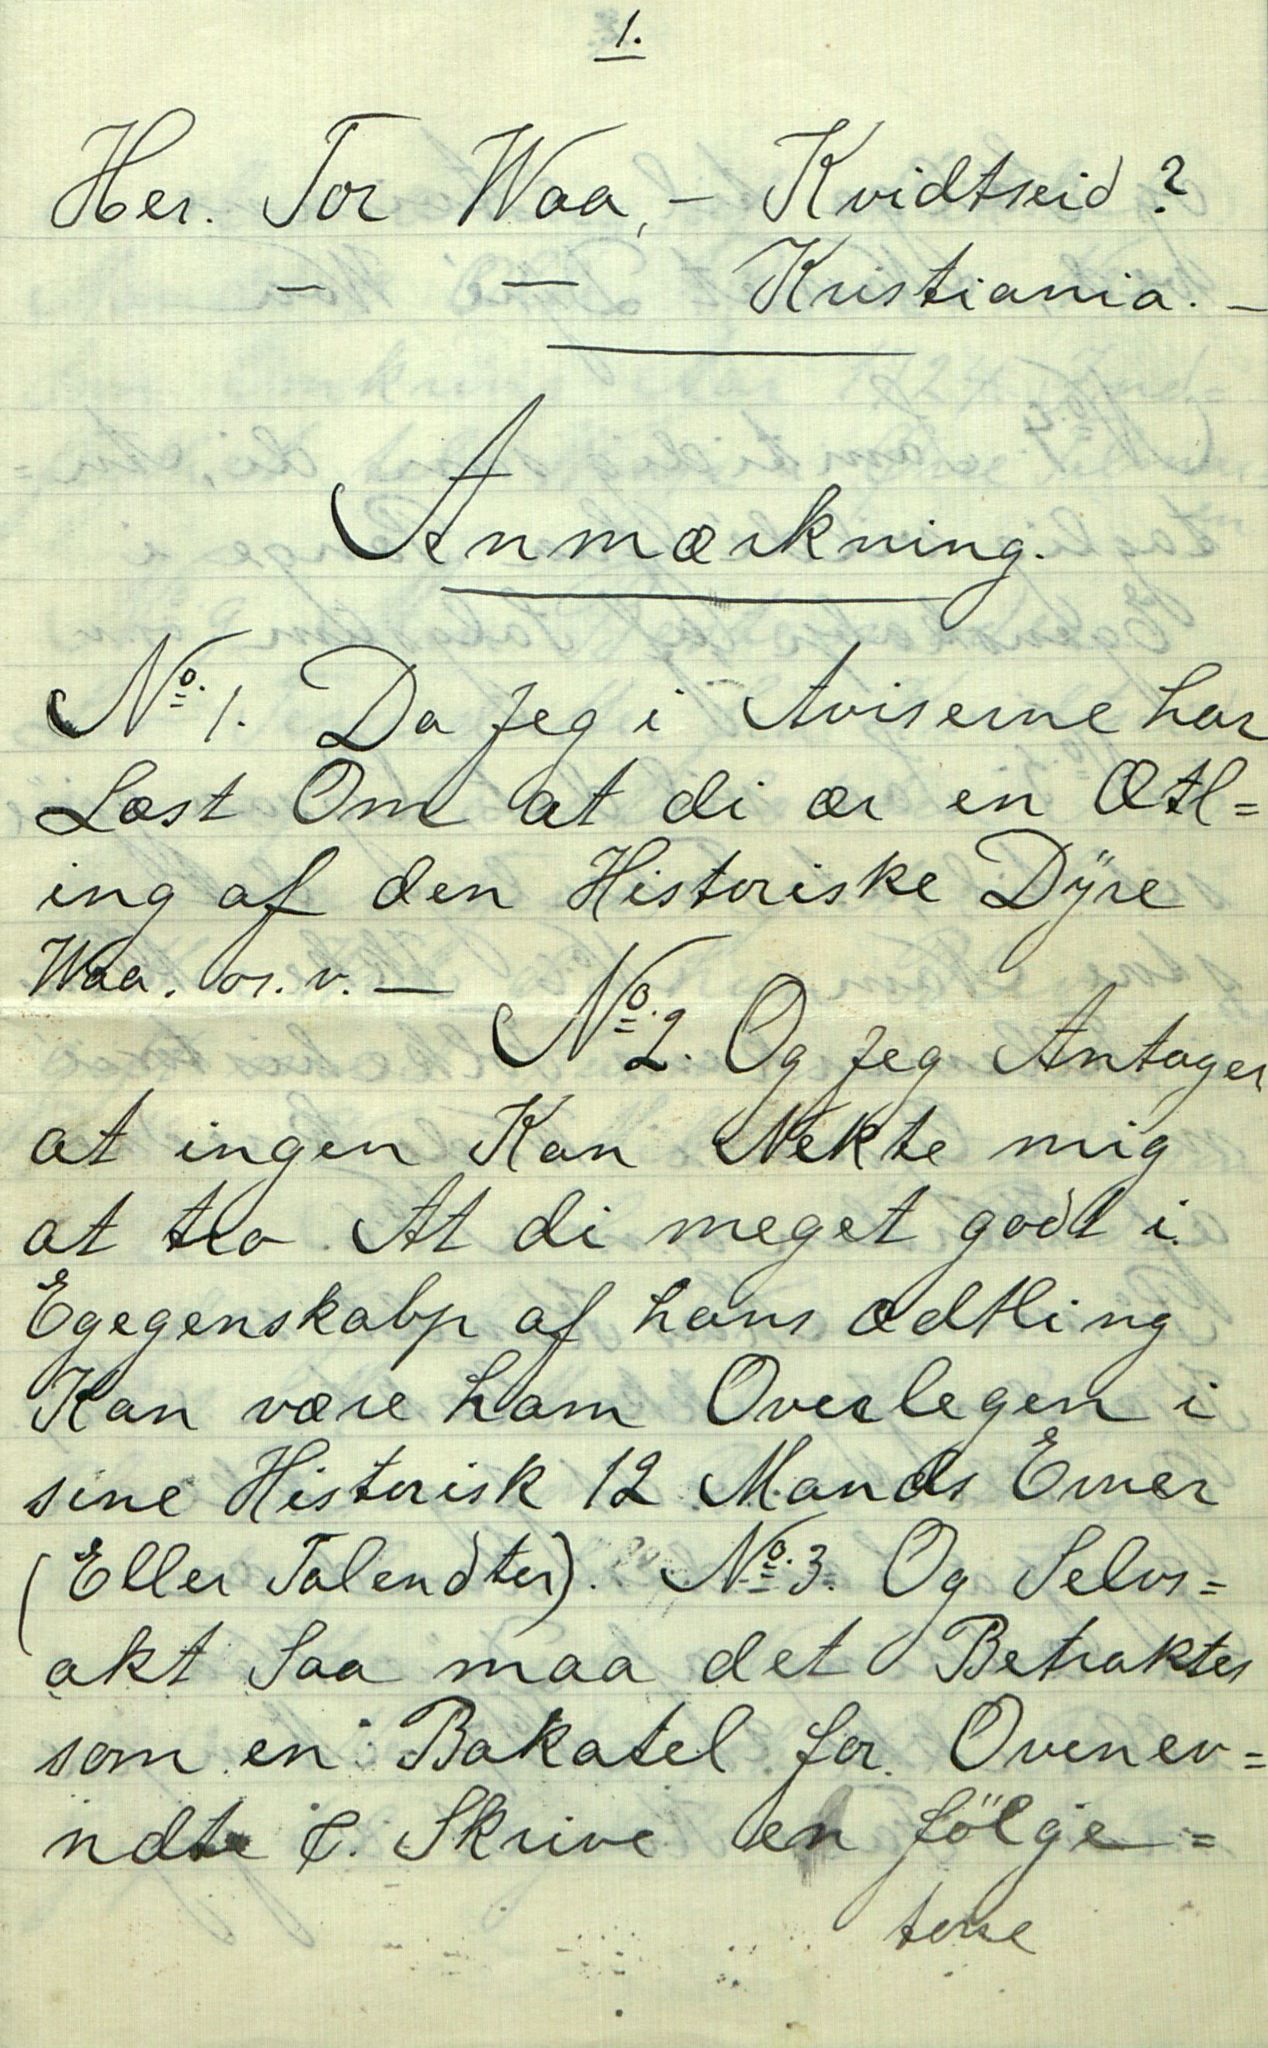 1.
Her. Tor Waa, - Kvidtseid?
- - Kristiania. -
Anmærkning.
No. 1. Da Jeg i Aviserne har
Læst Om at di ær en Ætl=
ing af den Historiske Dÿre
Waa. os. v. -
No. 2. Og Jeg Antager
at ingen Kan Nekte mig
at tro At di meget godt i
Egegenskabp af hans ædtling
Kan være ham Overlegen i
sine Historisk 12 Mands Evner
(Eller Talendter). No. 3. Og Selvs=
akt Saa maa det Betraktes
som en Bakatel for Ovenev=
ndte Skrive en fölge=